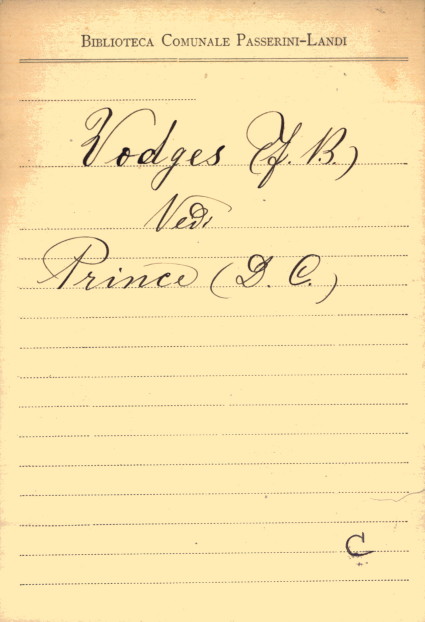 BIBLIOTECA COMUNALE PASSERINI-LANDI
Vodges (J. B.)
Vedi
Prince (D. C.)
C